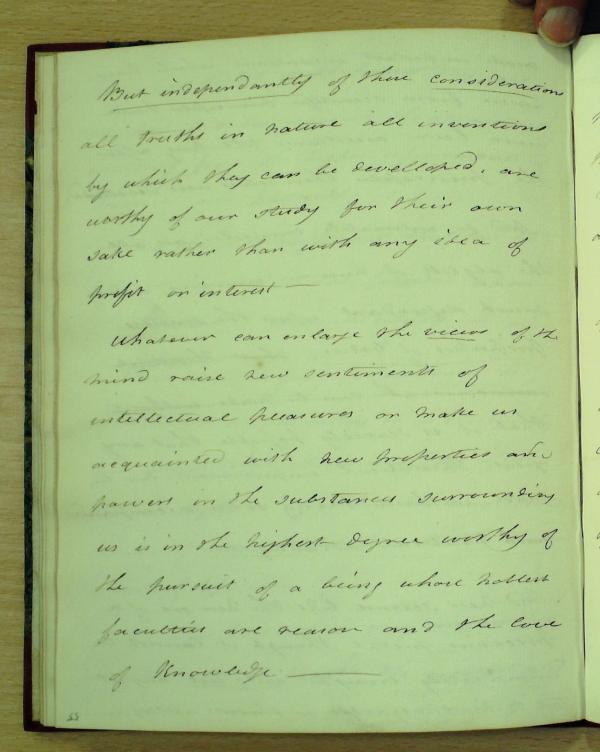 But independantly of these considerations
all truths in nature all inventions
by which they can be developed, are
worthy of our study for their own
sake rather than with any idea of
profit or interest —
Whatever can enlarge the views of the
mind raise new sentiments of
intellectual pleasures or make us
acquainted with new properties and
powers in the substances surrounding
us is in the highest degree worthy of
the pursuit of a being whose noblest
faculties are reason and the love
of Knowledge ———